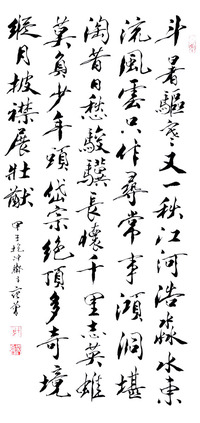 斗暑驅寒又一秋江河浩淼水東
流風雲只作尋常事澒洞堪
淘昔日愁駿驥長懷千里志英雄
莫負少年頭岱宗絕頂多奇境
縱目披襟展壯猷
甲子